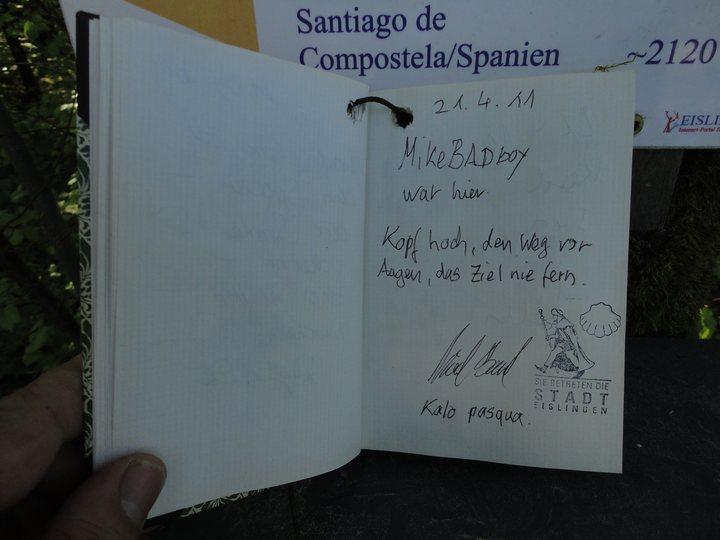 Santiago de
Compostela/Spanien ~2120
EISLI
21.4.11
MikeBADboy
war hier.
Kopf hoch, den Weg vor
Augen, das Ziel nie fern.
Kalo pasqua.
SIE BETRETEN DIE
STADT
EISLINGEN